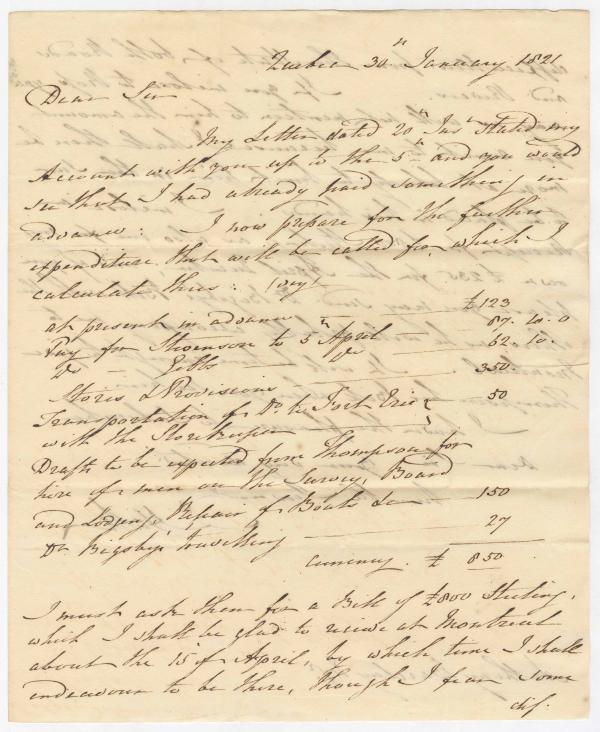 Quebec 30th January 1821
Dear Sir
My Letter dated 20th Inst Stated my
Account with you up to the 5th and you would
see that I had already paid something in
advance: I now prepare for the further
expenditure that will be called for, which I
calculate thus:
at present in advance £123
Pay for Stevenson to 5th April 87. 10. 0
Do Gibbs Do 62. 10.
Stores & Provisions 350.
Transportation of Do to Fort Erie 50
with the Storekeeper
Draft to be expected from Thompson for
hire of men on the Survey, Board
and Lodging, Repair of Boats &c 150
Dr Bigsby's travelling 27
Currency. £ 850
I must ask then for a Bill of £800 Sterling,
which I shall be glad to receive at Montreal
about the 15 of April, by which time I shall
endeavour to be there, though I fear some
dif.